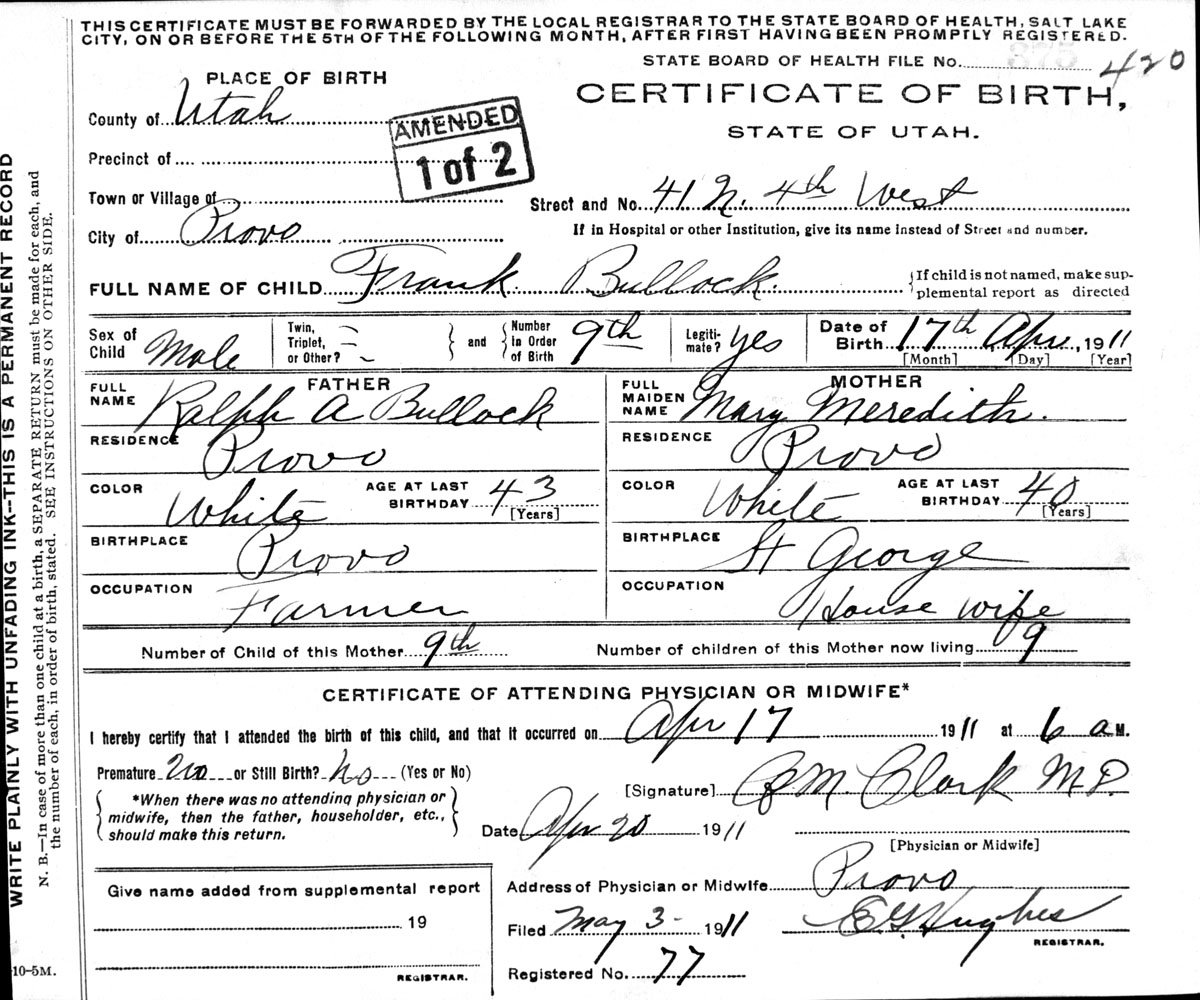 THIS CERTIFICATE MUST BE FORWARDED BY THE LOCAL REGISTRAR TO THE STATE BOARD OF HEALTH, SALT LAKE
CITY, ON OR BEFORE THE 5TH OF THE FOLLOWING MONTH, AFTER FIRST HAVING BEEN PROMPTLY REGISTERED.
STATE BOARD OF HEALTH FILE No. 375 420
PLACE OF BIRTH
CERTIFICATE OF BIRTH,
STATE OF UTAH.
County of Utah
AMENDED
1 of 2
Precinct of
Town or Village of
Street and No. 41 N. 4th West
City of Provo
If in Hospital or other Institution, give its name instead of Street and number.
FULL NAME OF CHILD Frank Bullock.
{If child is not named, make sup-
plemental report as directed
Sex of Child Male
Twin, Triplet, or Other? } and { Number in Order of Birth 9th
Legiti-mate? Yes
Date of Birth 17th Apr, 1911
[Month] [Day] [Year]
FATHER
FULL NAME Ralph A Bullock
RESIDENCE Provo
COLOR White AGE AT LAST BIRTHDAY 43 [Years]
BIRTHPLACE Provo
OCCUPATION Farmer
MOTHER
FULL MAIDEN NAME Mary Meredith.
RESIDENCE Provo
COLOR White AGE AT LAST BIRTHDAY 40 [Years]
BIRTHPLACE St George
OCCUPATION House wife
Number of Child of this Mother 9th Number of children of this Mother now living 9
CERTIFICATE OF ATTENDING PHYSICIAN OR MIDWIFE*
I hereby certify that I attended the birth of this child, and that it occurred on Apr 17 1911 at 6 a M.
Premature No or Still Birth? No (Yes or No)
{*When there was no attending physician or
midwife, then the father, householder, etc.,
should make this return.}
[Signature] M. Clark M.D.
Date Apr 20 1911
[Physician or Midwife]
Give name added from supplemental report
19
REGISTRAR.
Address of Physician or Midwife Provo
Filed May 3- 1911 Hughes
REGISTRAR.
Registered No. 77
WRITE PLAINLY WITH UNFADING INK--THIS IS A PERMANENT RECORD
N. B.—In case of more than one child at a birth, a SEPARATE RETURN must be made for each, and
the number of each, in order of birth, stated. SEE INSTRUCTIONS ON OTHER SIDE.
10-5M.